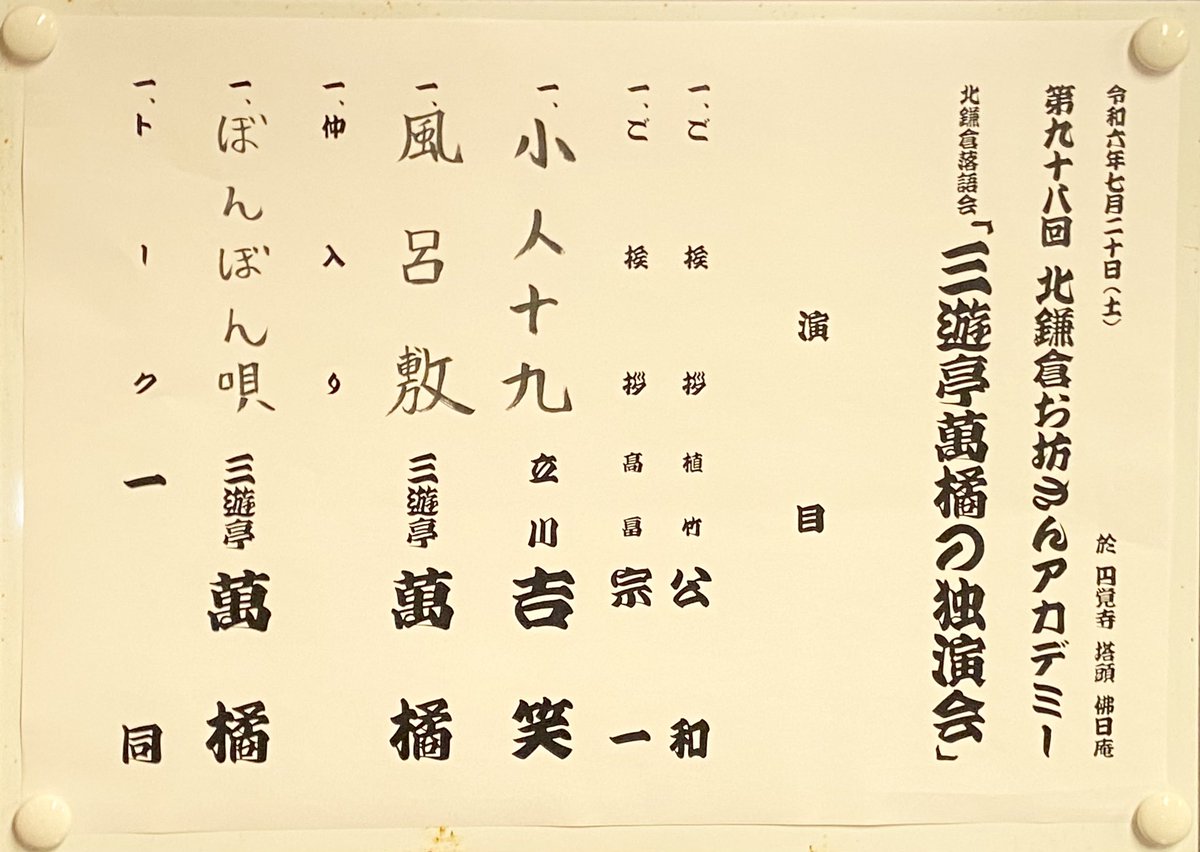 令和六年七月二十日（土）
於 円覚寺 塔頭 佛日庵
第九十八回 北鎌倉お坊さんアカデミー
北鎌倉落語会「三遊亭萬橘の独演会」
演目
一、ご挨拶 植竹 公和
一、ご挨拶 高畠 宗一
一、小人十九 立川 吉笑
一、風呂敷 三遊亭 萬橘
一、仲入り
一、ぼんぼん唄 三遊亭 萬橘
一、トーク 一同